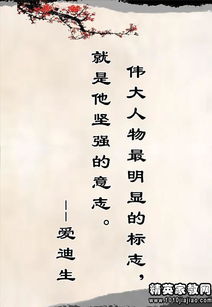 伟大人物最明显的标志，
就是他坚强的意志。
——爱迪生
精英家教网
www.1010jiajiao.com